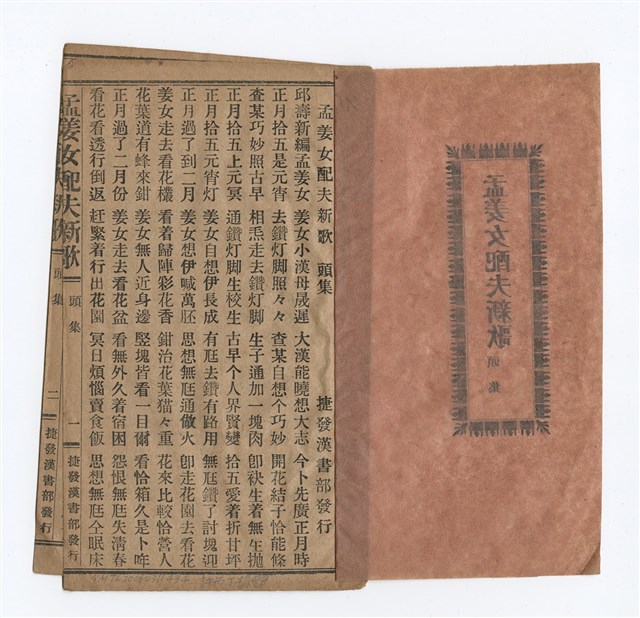 孟姜女配夫新歌
頭集
孟姜女配夫新歌 頭集 捷發漢書部發行
邱壽新編孟姜女 姜女小漢母晟遲 大漢能曉想大志 今卜先廣正月時
正月拾五是元宵 去鑽灯脚照々々 查某自想个巧妙 開花結子恰能條
查某巧妙照古早 相焏走去鑽灯脚 生子通加一塊肉 卽袂生着無
正月拾五上元冥 通鑽灯脚生校生 古早个人界賢變 拾五愛着折甘坪
正月拾五元宵灯 姜女自想伊長成 有尫去鑽有路用 無尫鑽了討塊迎
正月過了到二月 姜女想伊喊萬胚 思想無尫通做火 卽走花園去看花
姜女走去看花欉 看着歸陣彩花香 鉗治花葉猫々重 花來比較恰營人
花葉道有蜂來鉗 姜女無人近身邊 竪塊皆看一日爾 看恰箱久是卜
正月過了二月份 姜女走去看花盆 看無外久着宿困 怨恨無尫失清春
看花看透行倒返 赶緊着行出花園 冥日煩惱賣食飯 思想無尫仝眠床
孟姜女配夫新歌 頭集 一 捷發漢書部發行
頭集 二 捷發漢書部發行